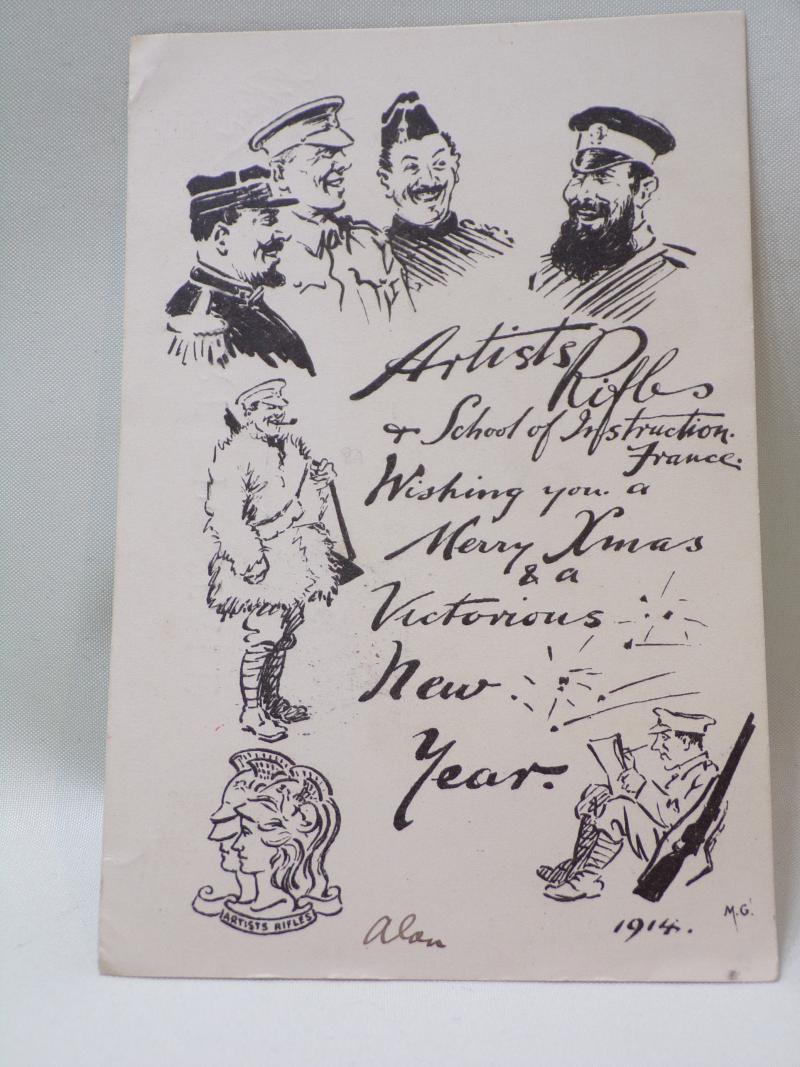 Artists
Rifles
& School of Instruction.
France.
Wishing you a
Merry Xmas
& a
Victorious
New
Year.
ARTISTS RIFLES
Alan
1914.
M.G.